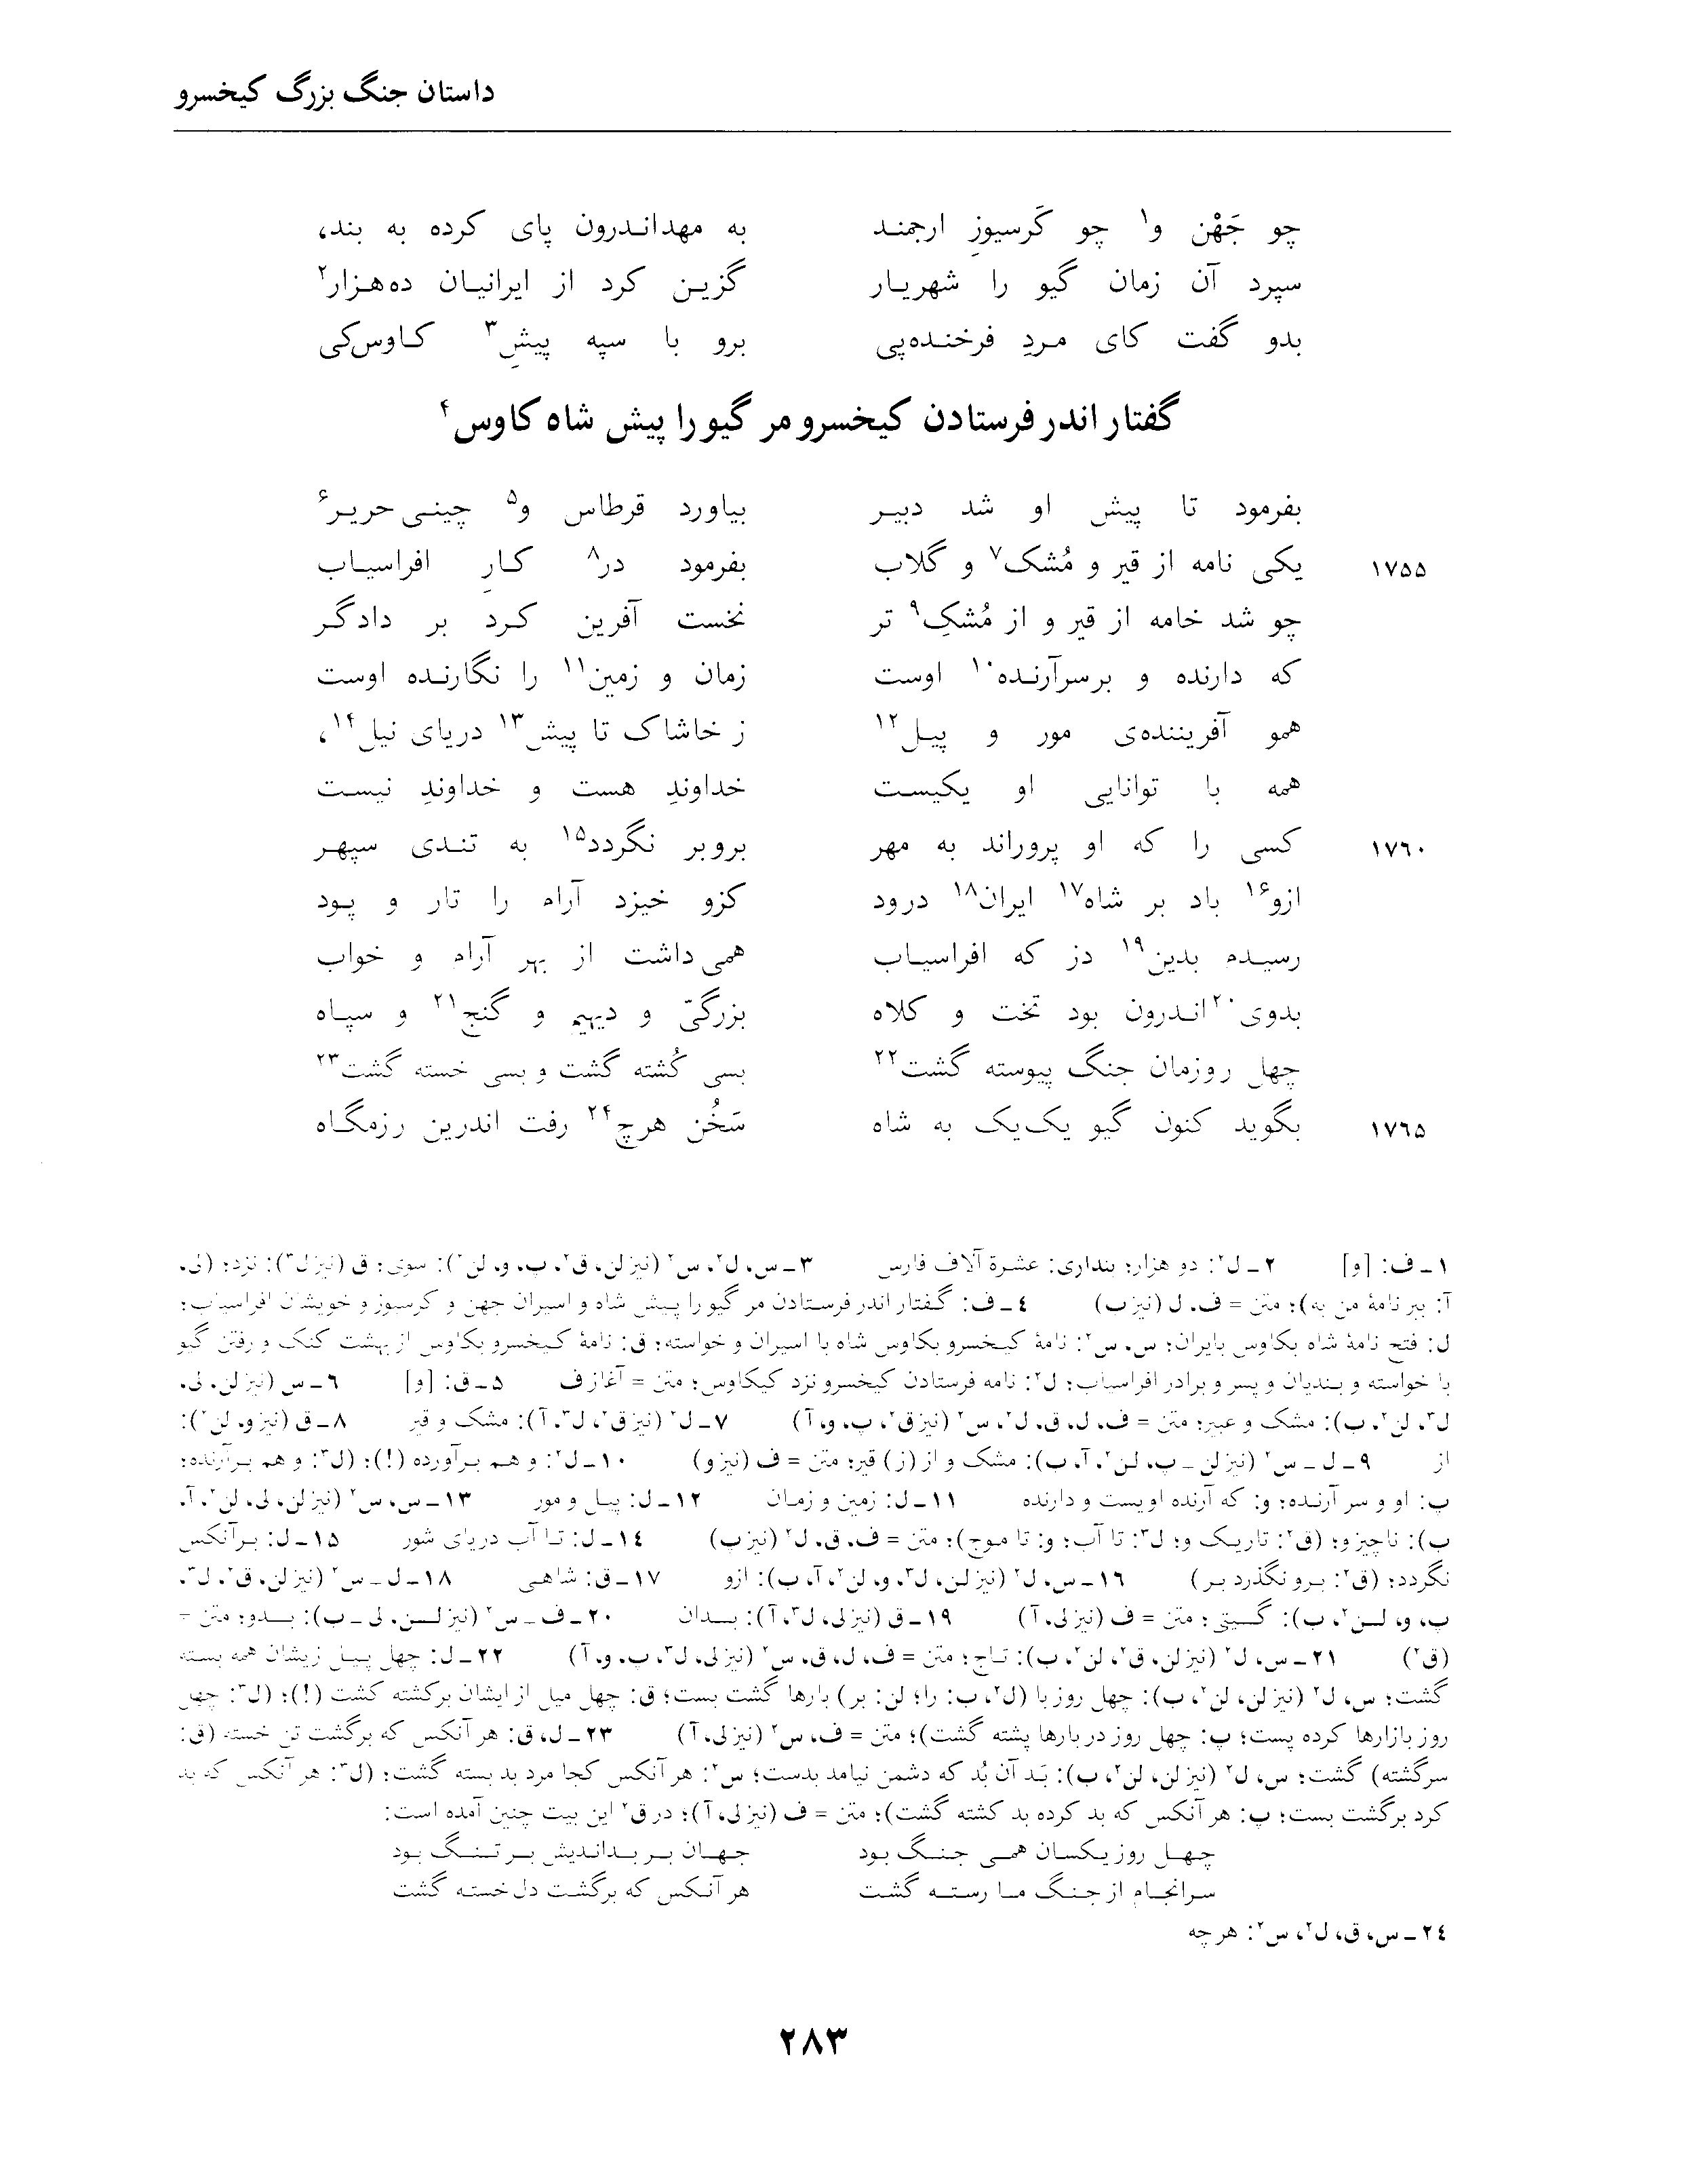 داستان جنگ بزرگ کیخسرو
چو جَهْن و۱ چو کَرسیوزِ ارجمند به مهداندرون پای کرده به بند،
سپرد آن زمان گیو را شهریار گزین کرد از ایرانیان ده‌هزار۲
بدو گفت کای مردِ فرخنده‌پی برو با سپه پیشِ۳ کاوس‌کی
گفتار اندر فرستادن کیخسرو مر گیو را پیش شاه کاوس۴
بفرمود تا پیش او شد دبیر بیاورد قرطاس و۵ چینی‌حریر۶
۱۷۵۵ یکی نامه از قیر و مُشک۷ و گلاب بفرمود در۸ کارِ افراسیاب
چو شد خامه از قیر و از مُشکِ۹ تر نخست آفرین کرد بر دادگر
که دارنده و برسرآرنده۱۰ اوست زمان و زمین۱۱ را نگارنده اوست
همو آفریننده‌ی مور و پیل۱۲ ز خاشاک تا پیش۱۳ دریای نیل۱۴،
همه با توانایی او یکیست خداوندِ هست و خداوندِ نیست
۱۷۶۰ کسی را که او پروراند به مهر بروبر نگردد۱۵ به تندی سپهر
ازو۱۶ باد بر شاه۱۷ ایران۱۸ درود کزو خیزد آرام را تار و پود
رسیدم بدین۱۹ دز که افراسیاب همی‌داشت از بهر آرام و خواب
بدوی۲۰اندرون بود تخت و کلاه بزرگیّ و دیهیم و گنج۲۱ و سپاه
چهل روزمان جنگ پیوسته گشت۲۲ بسی کُشته گشت و بسی خسته گشت۲۳
۱۷۶۵ بگوید کنون گیو یک‌یک به شاه سَخُن هرچ۲۴ رفت اندرین رزمگاه
۱ـ ف: [و] ۲ـ ل۲: دو هزار؛ بنداری: عشرة آلاف فارس ۳ـ س، ل۲، س۲ (نیز لن، ق۲، ب، و، لن۲): سوی؛ ق (نیز ل۳): نزد؛ (لی،
آ: ببر نامهٔ من به)؛ متن = ف، ل (نیز ب) ۴ـ ف: گفتار اندر فرستادن مر گیو را پیش شاه و اسیران جهن و کرسیوز و خویشان افراسیاب؛
ل: فتح نامهٔ شاه بکاوس بایران؛ س، س۲: نامهٔ کیخسرو بکاوس شاه با اسیران و خواسته؛ ق: نامهٔ کیخسرو بکاوس از بهشت کنک و رفتن گیو
با خواسته و بندیان و پسر و برادر افراسیاب؛ ل۲: نامه فرستادن کیخسرو نزد کیکاوس؛ متن = آغاز ف ۵ـ ق: [و] ۶ـ س (نیز لن، لی،
ل۳، لن۲، ب): مشک و عبیر؛ متن = ف، ل، ق، ل۲، س۲ (نیز ق۲، پ، و، آ) ۷ـ ل۲ (نیز ق۲، ل۳، آ): مشک و قیر ۸ـ ق (نیز و، لن۲):
از ۹ـ ل ـ س۲ (نیز لن ـ پ، لن۲، آ، ب): مشک و از (ز) قیر؛ متن = ف (نیز و) ۱۰ـ ل۲: و هم برآورده (!)؛ (ل۳: و هم برآرنده؛
پ: او و سر آرنده؛ و: که آرنده اویست و دارنده ۱۱ـ ل: زمین و زمان ۱۲ـ ل: پیل و مور ۱۳ـ س، س۲ (نیز لن، لی، لن۲، آ،
ب): ناچیز و؛ (ق۲: تاریک و؛ ل۳: تا آب؛ و: تا موج)؛ متن = ف، ق، ل۲ (نیز ب) ۱۴ـ ل: تا آب دریای شور ۱۵ـ ل: برآنکس
نگردد؛ (ق۲: برو نگذرد بر) ۱۶ـ س، ل۲ (نیز لن، ل۳، و، لن۲، آ، ب): ازو ۱۷ـ ق: شاهی ۱۸ـ ل ـ س۲ (نیز لن، ق۲، ل۳،
پ، و، لن۲، ب): گیتی؛ متن = ف (نیز لی، آ) ۱۹ـ ق (نیز لی، ل۳، آ): بدان ۲۰ـ ف ـ س۲ (نیز لن، لی ـ ب): بدو؛ متن =
(ق۲) ۲۱ـ س، ل۲ (نیز لن، ق۲، لن۲، ب): تاج؛ متن = ف، ل، ق، س۲ (نیز لی، ل۳، ب، و، آ) ۲۲ـ ل: چهل پیل زیشان همه بسته
گشت؛ س، ل۲ (نیز لن، لن۲، ب): چهل روز با (ل۲، ب: را؛ لن: بر) بارها گشت بست؛ ق: چهل میل از ایشان برکشته کشت (!)؛ (ل۳: چهل
روز بازارها کرده پست؛ پ: چهل روز در بارها پشته گشت)؛ متن = ف، س۲ (نیز لی، آ) ۲۳ـ ل، ق: هر آنکس که برگشت تن خسته (ق:
سرگشته) گشت؛ س، ل۲ (نیز لن، لن۲، ب): بَد آن بُد که دشمن نیامد بدست؛ س۲: هر آنکس کجا مرد بد بسته گشت؛ (ل۳: هر آنکس که بد
کرد برگشت بست؛ پ: هر آنکس که بد کرده بد کشته گشت)؛ متن = ف (نیز لی، آ)؛ در ق۲ این بیت چنین آمده است:
چهل روز یکسان همی جنگ بود جهان بر بداندیش بر تنگ بود
سرانجام از جنگ ما رسته گشت هر آنکس که برگشت دل خسته گشت
۲۴ـ س، ق، ل۲، س۲: هر چه
۲۸۳